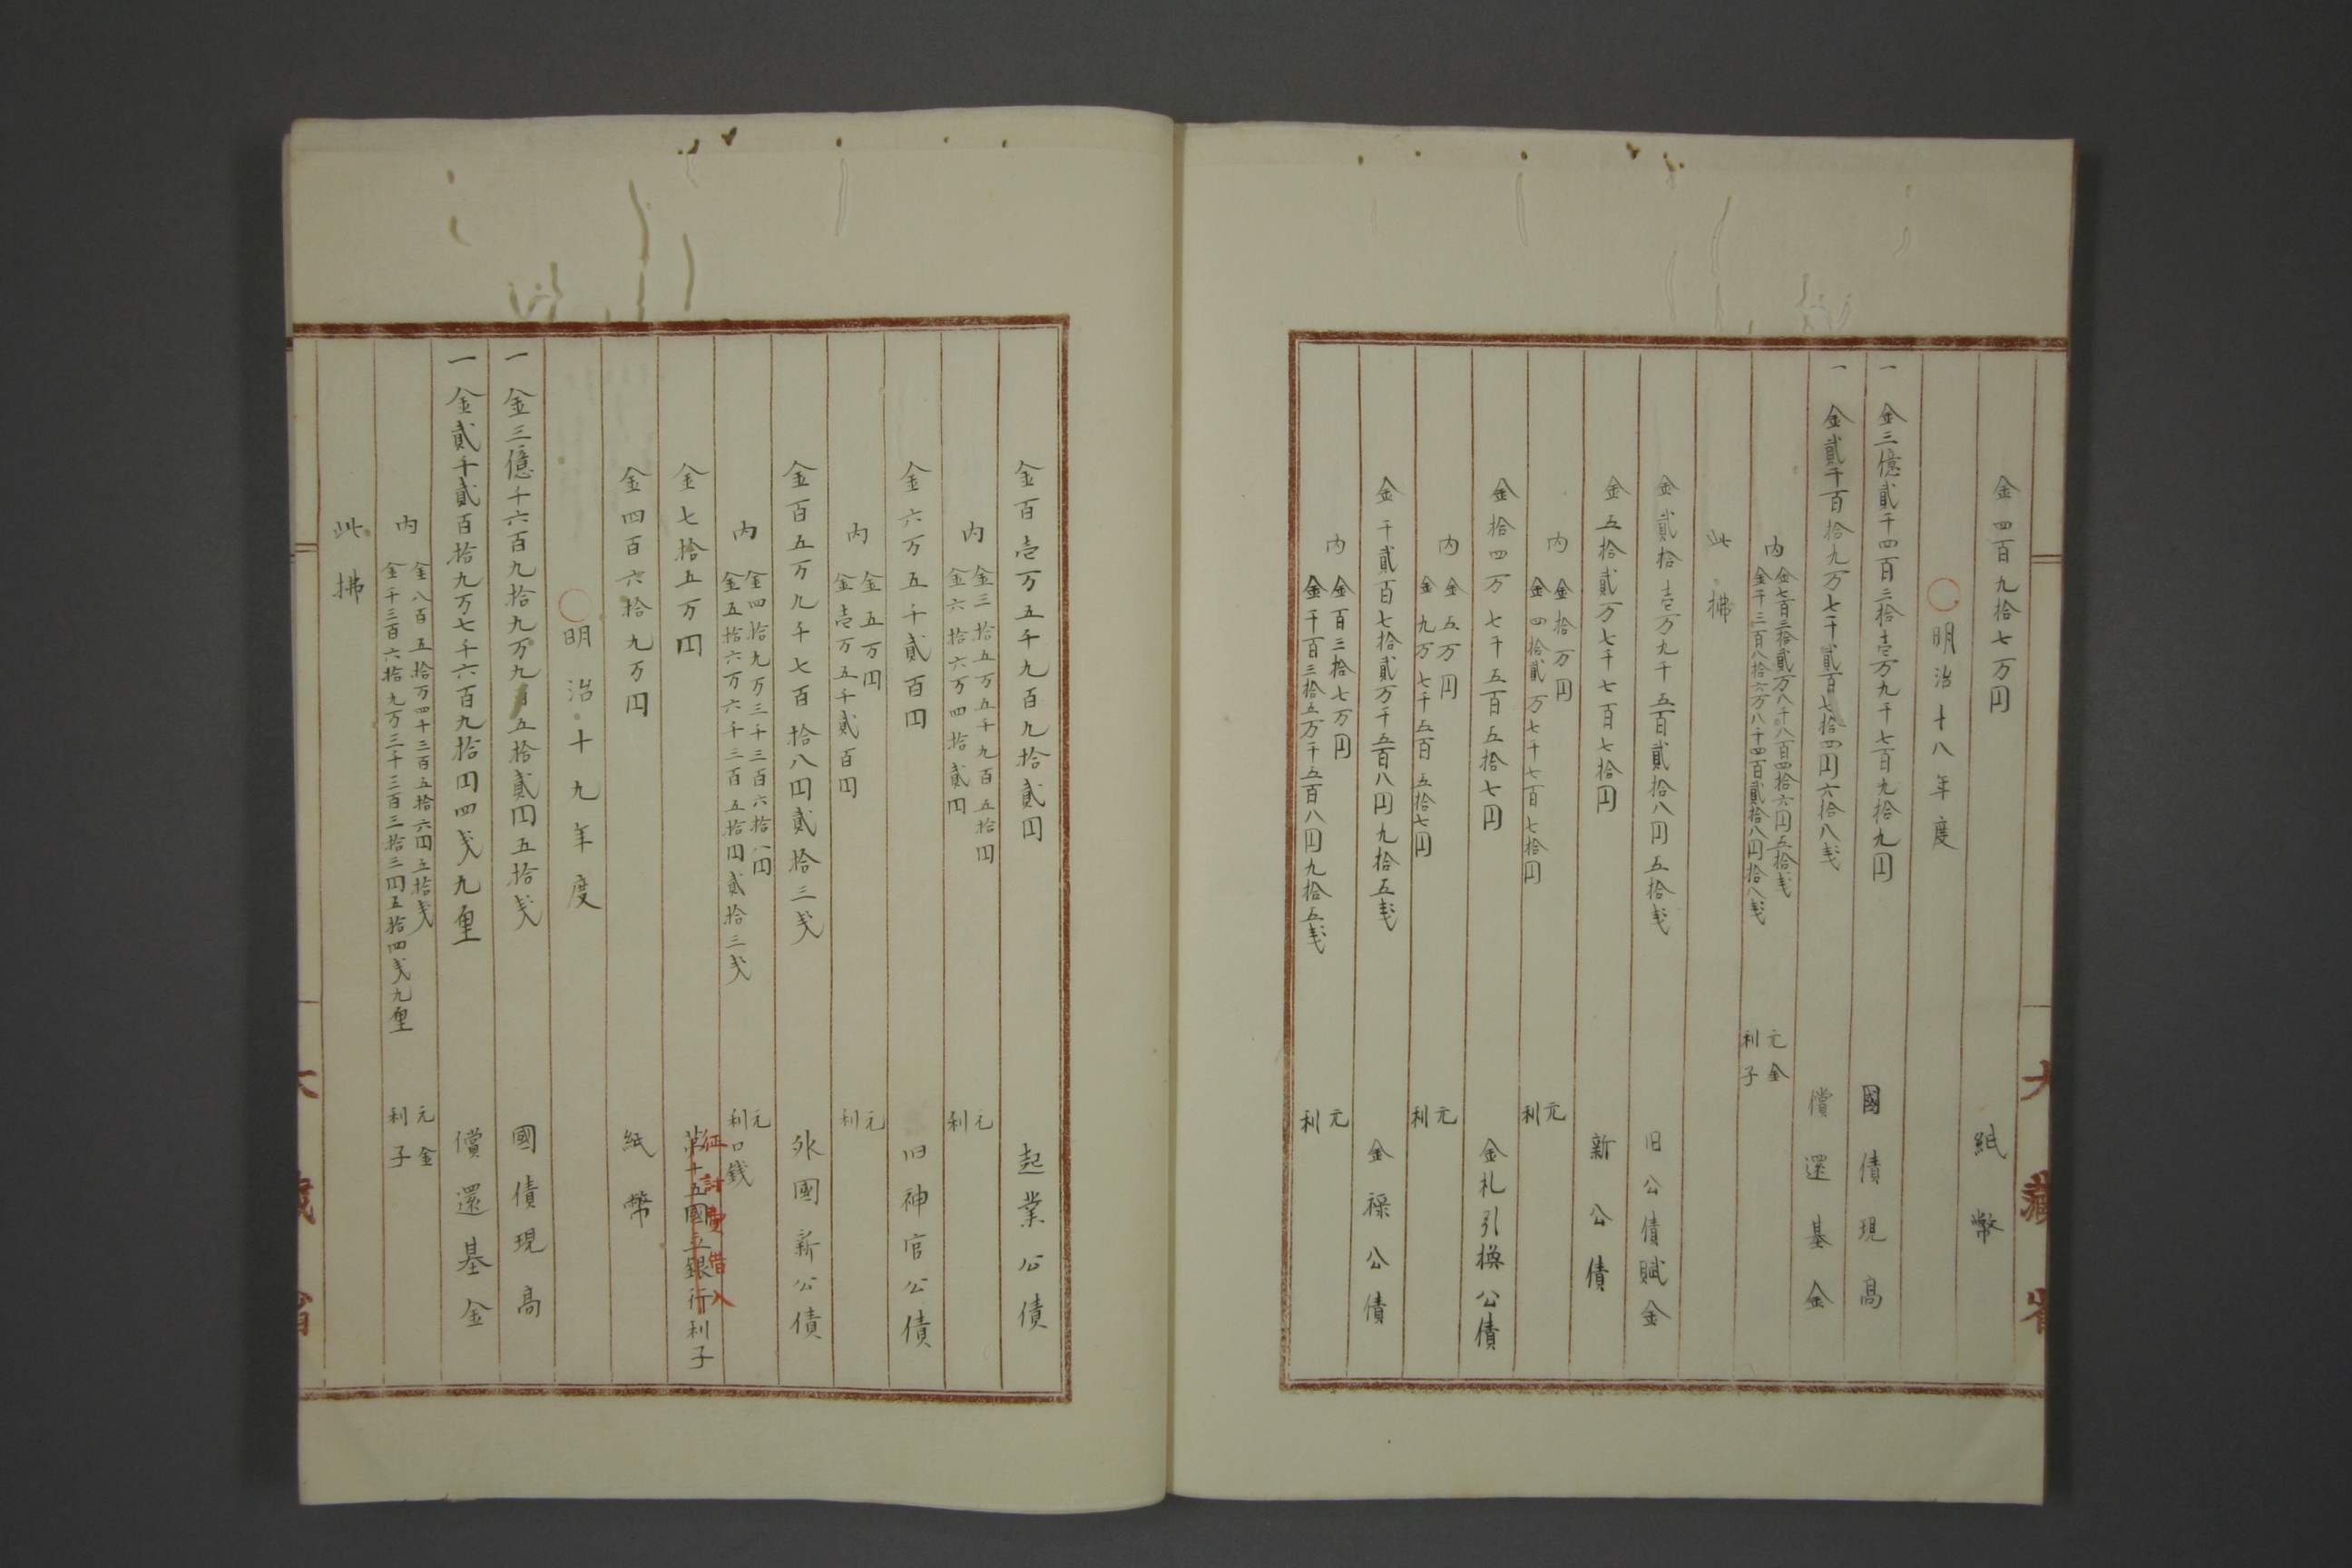 金四百九拾七万円　紙幣
○明治十八年度
一金三億貳千四百三拾壱万九千七百九拾九円　國債現高
一金貳千百拾九万七千貳百七拾四円六拾八戔　償還基金
内　金七百三拾貳万八千八百四拾六円五拾戔　元金
金千三百八拾六万八千四百貳拾八円拾八戔　利子
此拂
金貳拾壱万九千五百貳拾八円五拾戔　旧公債賦金
金五拾貳万七千七百七拾円　新公債
内　金拾万円　元
金四拾貳万七千七百七拾円　利
金拾四万七千五百五拾七円　金札引換公債
内　金五万円　元
金九万七千五百五拾七円　利
金千貳百七拾貳万千五百八円九拾五戔　金禄公債
内　金百三拾七万円　元
金千百三拾五万千五百八円九拾五戔　利
大藏省
金百壱万五千九百九拾貳円　起業公債
内　金三拾五万五千九百五拾円　元
金六拾六万四拾貳円　利
金六万五千貳百円　旧神官公債
内　金五万円　元
金壱万五千貳百円　利
金百五万九千七百拾八円貳拾三戔　外國新公債
内　金四拾九万三千三百六拾八円　元
金五拾六万六千三百五拾円貳拾三戔　利口錢
征討費借入
金七拾五万円　第十五國立銀行利子
金四百六拾九万円　紙幣
○明治十九年度
一金三億千六百九拾九万九百五拾貳円五拾戔　國債現高
一金貳千貳百拾九万七千六百九拾円四戔九厘　償還基金
内　金八百五拾万四千三百五拾六円五拾戔　元金
金千三百六拾九万三千三百三拾三円五拾四戔九厘　利子
此拂
大藏省